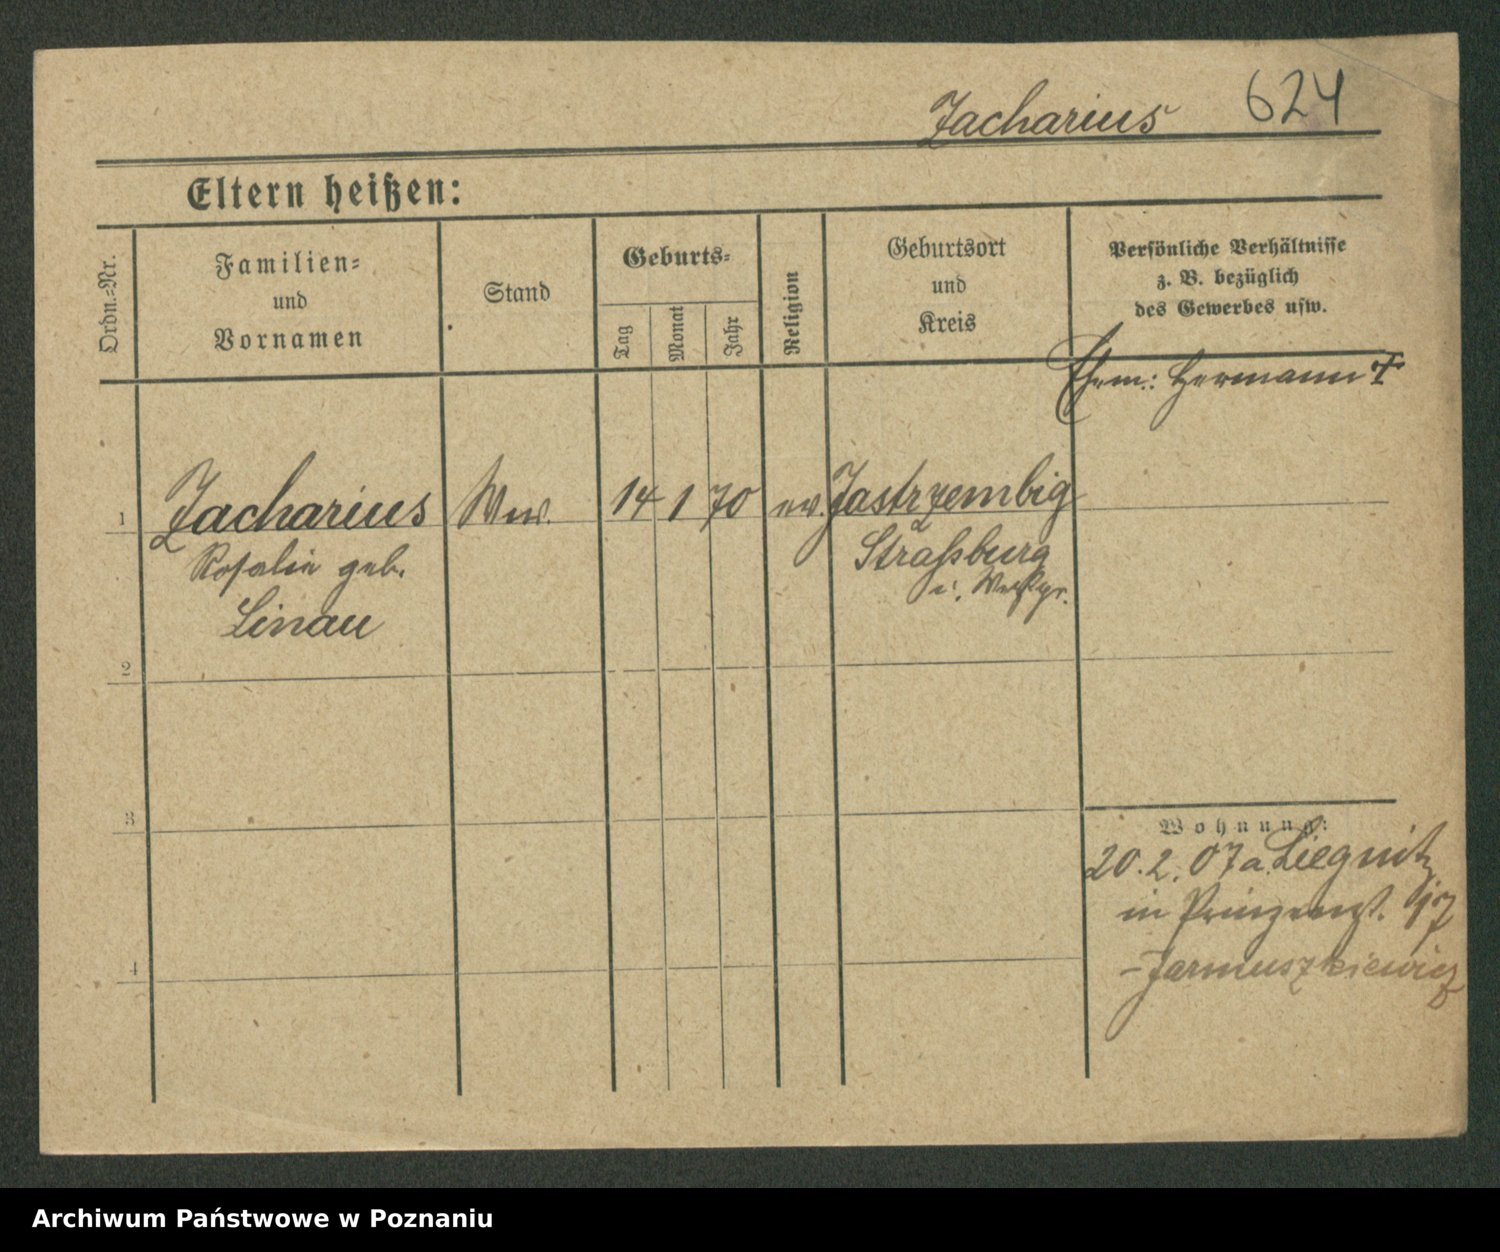 Zacharius 624
Eltern heißen:
Ordn.-Nr.
Familien-
und
Vornamen
Stand
Geburts-
Tag
Monat
Jahr
Religion
Geburtsort
und
Kreis
Persönliche Verhältnisse
z. B. bezüglich
des Gewerbes usw.
Ehem: Hermann +
1 Zacharius Ww. 14 1 70 ev. Jastrzembig
Rosalie geb. Straßburg
i. Westpr.
Linau
2
3
4
Wohnung:
20.2.07 a. Liegnitz
in Prinzenst. 17
- Jarmuszkiewicz
Archiwum Państwowe w Poznaniu